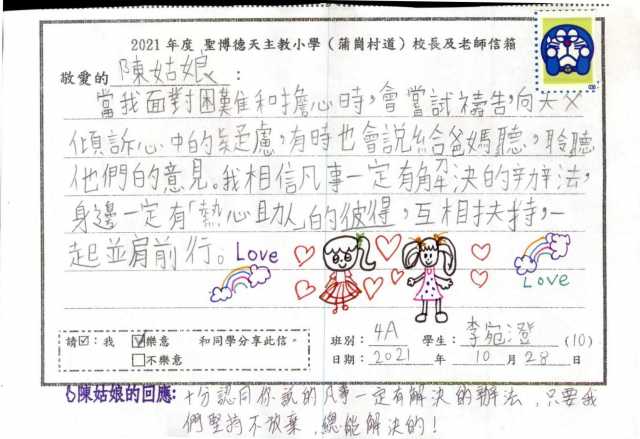 2021 年度 聖博德天主教小學（蒲崗村道）校長及老師信箱
敬愛的 陳姑娘 ：
當我面對困難和擔心時，會嘗試禱告，向天父
傾訴心中的疑慮，有時也會説給爸媽聽，聆聽
他們的意見。我相信凡事一定有解決的辦法，
身邊一定有「熱心助人」的彼得，互相扶持，一
起並肩前行。Love
Love
請☑：我 ☑樂意 和同學分享此信。
□不樂意
班別：4A 學生：李宛澄 (10)
日期：2021 年 10 月 28 日
陳姑娘的回應：十分認同你說的凡事一定有解決的辦法，只要我
們堅持不放棄，總能解決的！